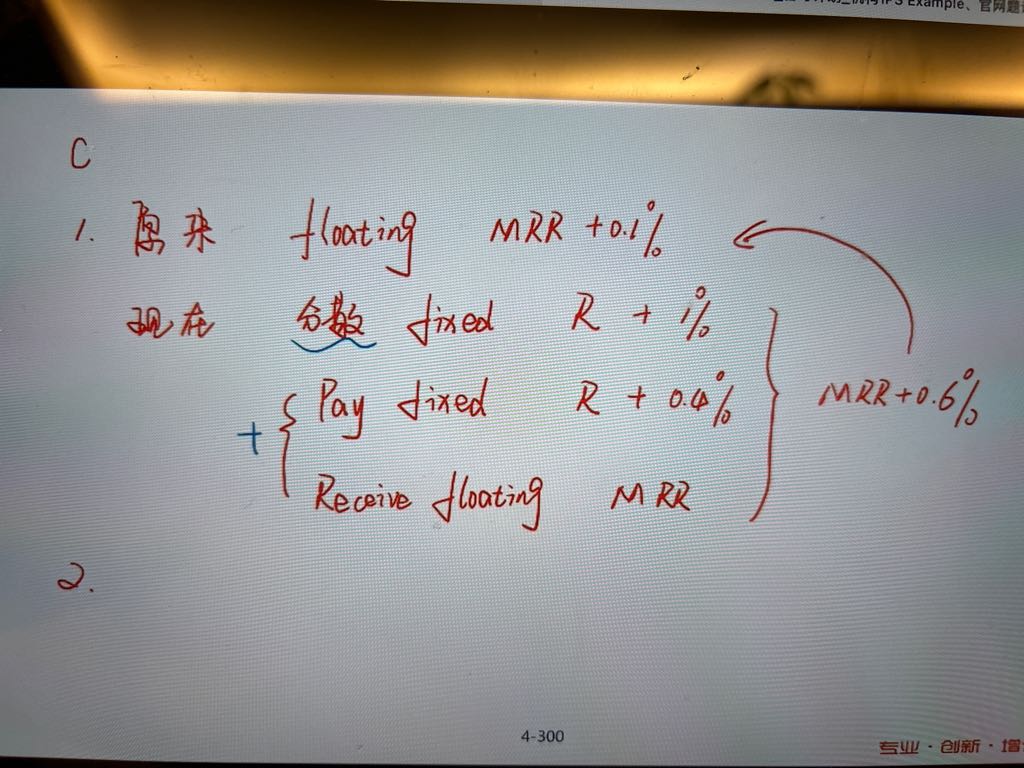 IPS Example、官网题
C
1. 原来 floating MRR + 0.1%
现在 分散 fixed R + 1%
+ { Pay fixed R + 0.4% } MRR + 0.6%
Receive floating MRR
2.
4-300
专业·创新·增